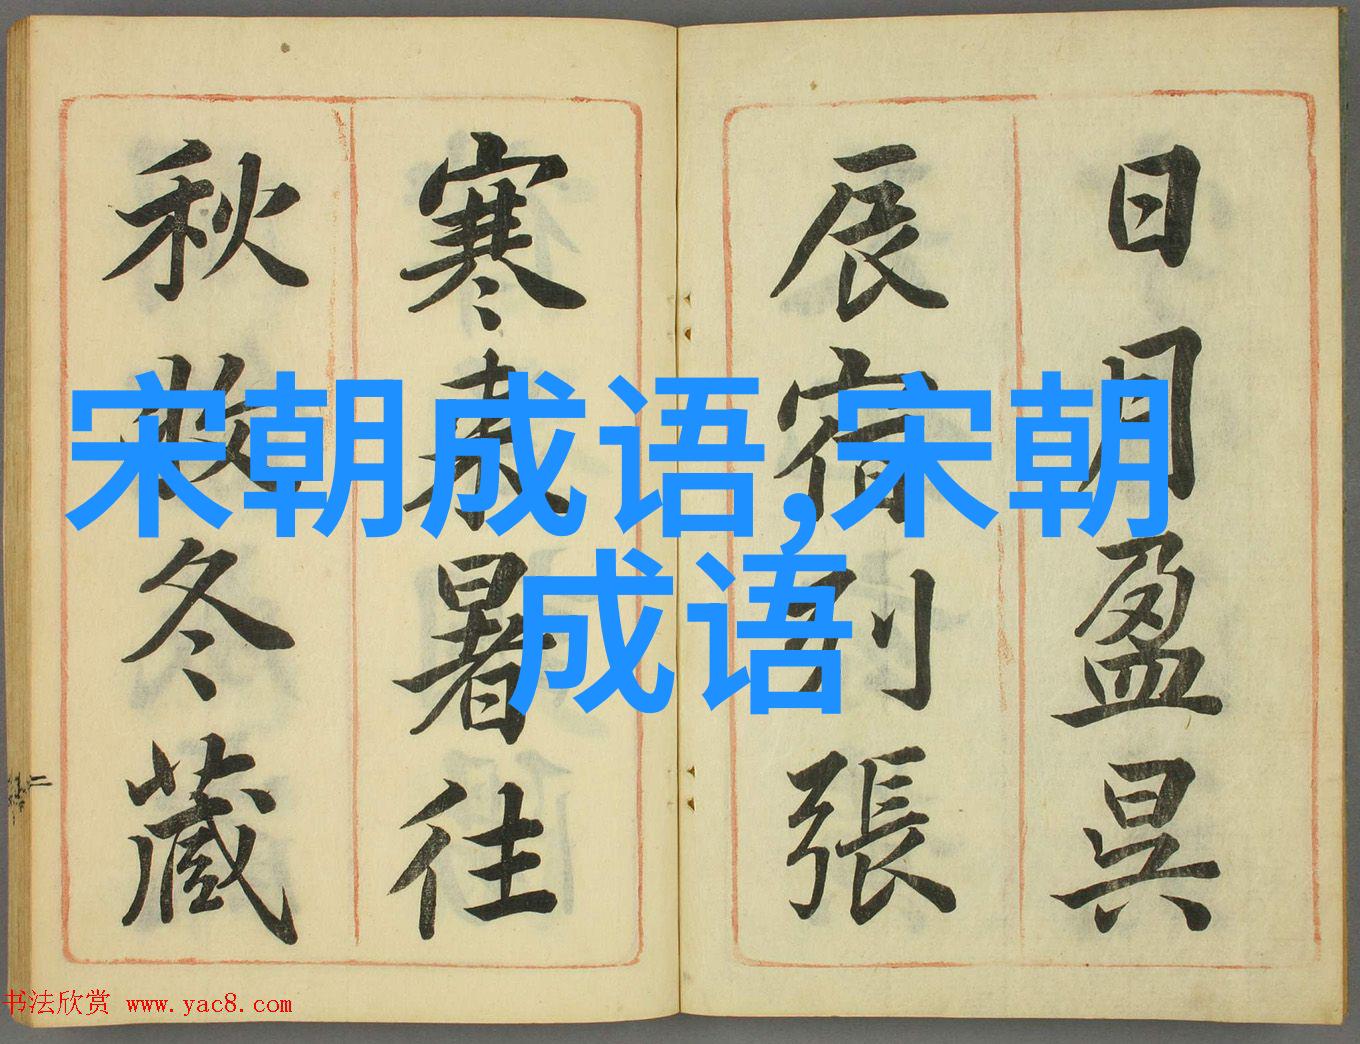 日月盈昃
辰宿列張
寒来暑往
秋收冬藏
宋朝成语,宋朝
成语
书法欣赏 www.yac8.com